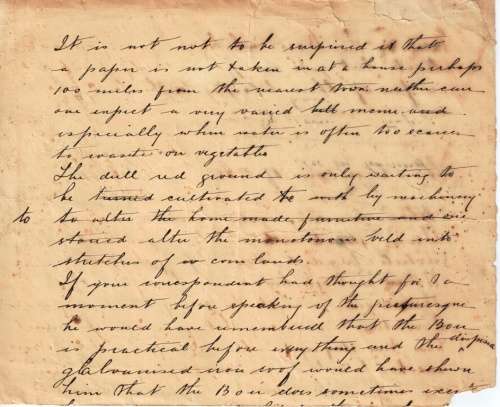 It is not not to be surprised at that
a paper is not taken in at a house perhaps
100 miles from the nearest town neither can
one expect a very varied bill menu and
especially when water is often too scarce
to waste on vegetables
The dull red ground is only waiting to
be turned cultivated to with by machinery
to to alter the home made furniture and are
stoned alter the monotonous veld into
stretches of corn lands
If your correspondent had thought for a
moment before speaking of the picturesque
he would have remembered that the Boer
is practical before everything and the despised
galvanised iron roof would have shewn
him that the Boer does sometimes